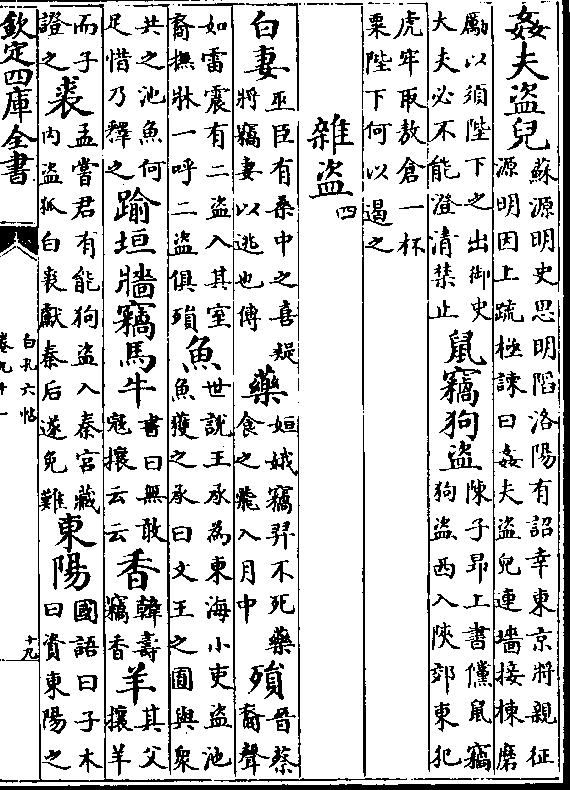 姦夫盜兒蘇源明史思明陷洛陽有詔幸東京將親征
源明因上疏極諫曰姦夫盜兒連墻接棟磨
厲以須陛下之出御史
大夫必不能澄清禁止鼠竊狗盜陳子昻上書儻鼠竊
狗盜西入陜郊東犯
虎牢取敖倉一杯
粟陛下何以遏之
雜盜四
白妻巫臣有桑中之喜疑
將竊妻以逃也傅藥姮娥竊羿不死藥
食之飛入月中殞晉蔡
裔聲
如雷震有二盜入其室
裔撫牀一呼二盜俱殞魚世說王承為東海小吏盜池
魚獲之承曰文王之囿與衆
共之池魚何
足惜乃釋之踰垣牆竊馬牛書曰無敢
寇攘云云香韓壽
竊香羊其父
攘羊
而子
證之裘孟嘗君有能狗盜入秦宮藏
內盜狐白裘獻秦后遂免難東陽國語曰子木
曰資東陽之
欽定四庫全書
白孔六帖
卷九十一
十九